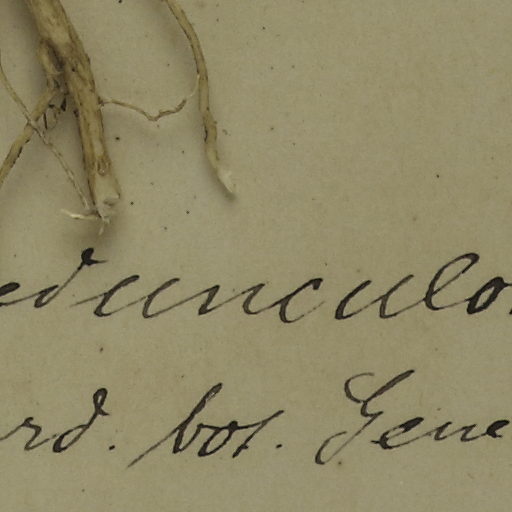 edunculo
rd. bot. Gene